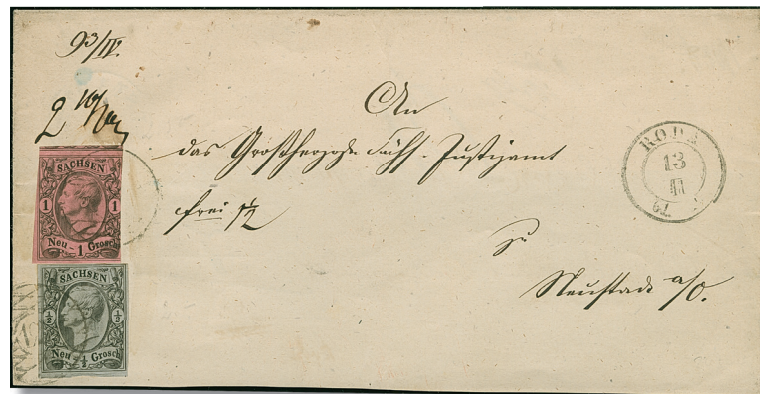 93/IV.
2
An
das Großherzogl. Sächs. Justizamt
frei 1/2
zu
Neustadt a/O.
RODA
13
II
SACHSEN
1 1
Neu - 1 Grosch
SACHSEN
1/2 1/2
Neu - 1/2 Grosch